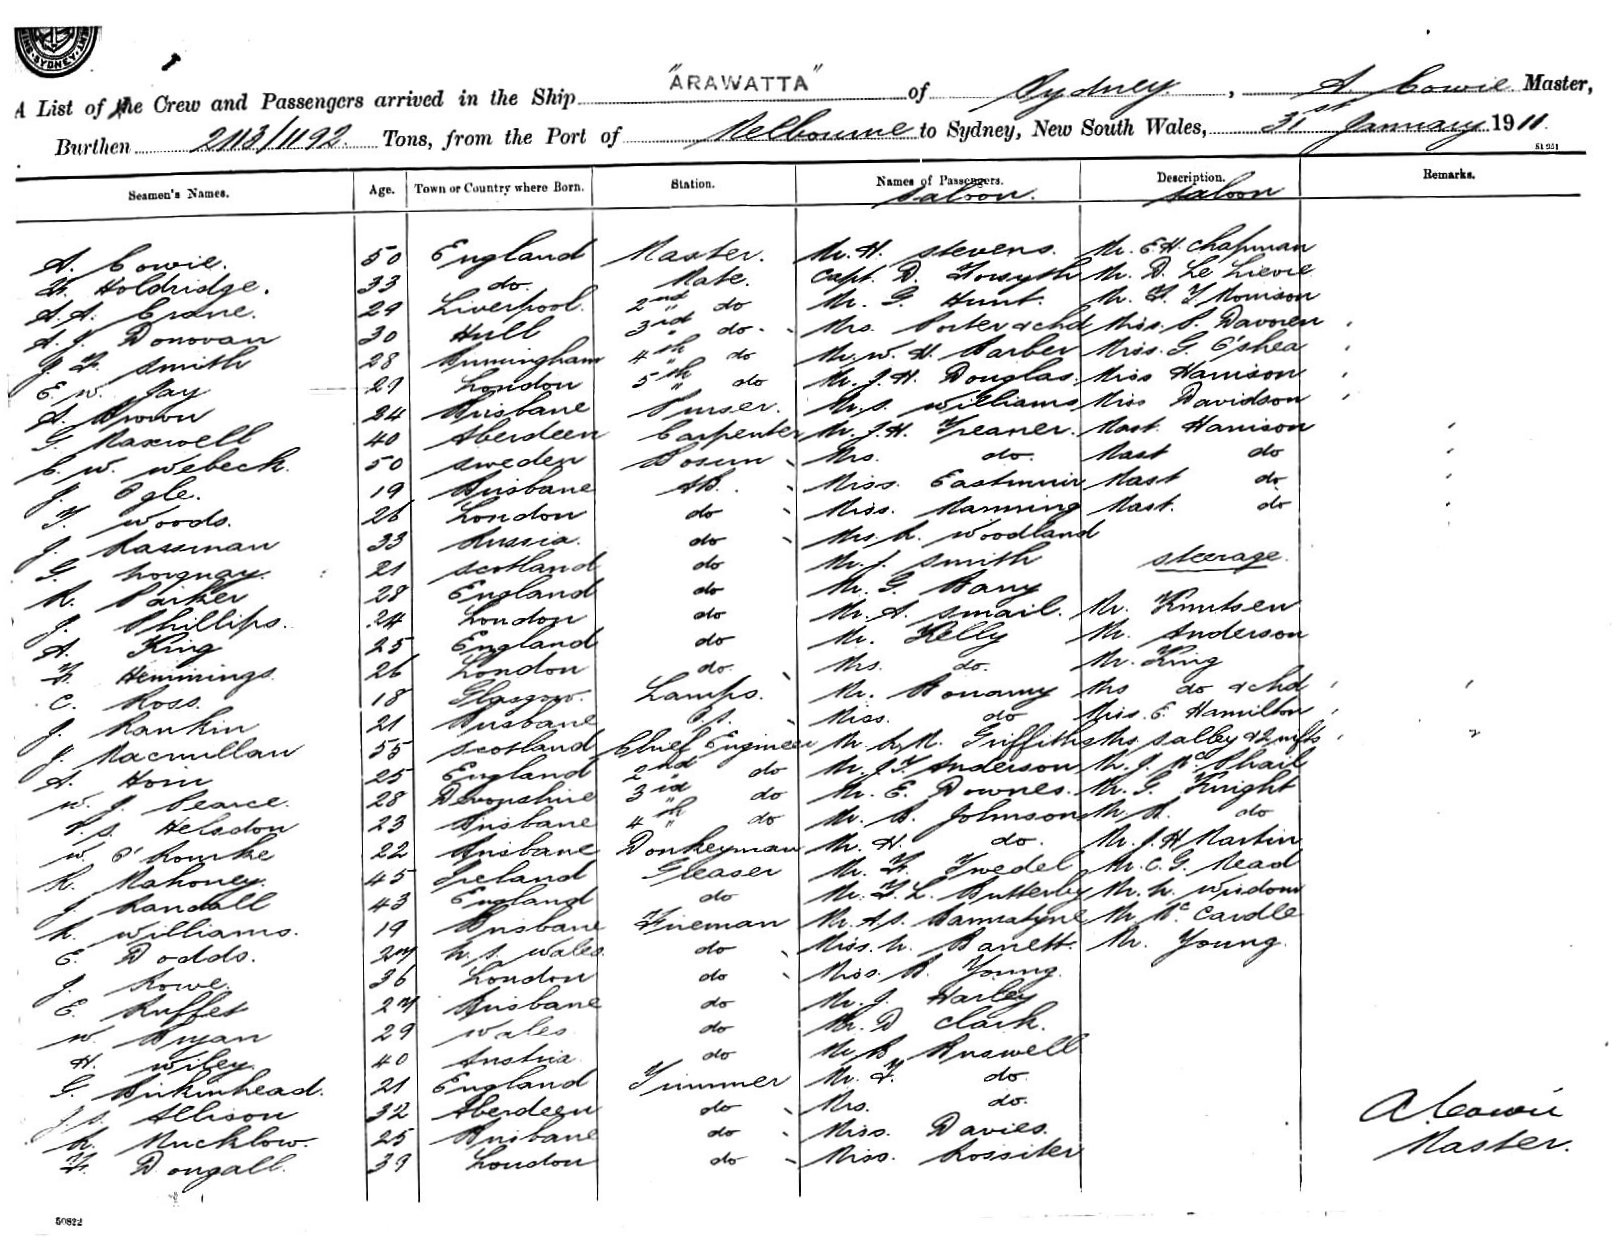 SYDNEY
A List of the Crew and Passengers arrived in the Ship "ARAWATTA" of Sydney, A Cowie Master,
Burthen 2113/1192 Tons, from the Port of Melbourne to Sydney, New South Wales, 31st January 1911.
51251
Seamen's Names. Age. Town or Country where Born. Station. Names of Passengers. Description. Remarks.
Saloon. Saloon
A. Cowie. 50 England Master. Mr. H. Stevens. Mr. E. H. Chapman
F. Holdridge. 33 do. Mate. Capt. D. Forsyth Mr. D. Le Lievre
A. A. Crane. 29 Liverpool. 2nd " do Mr. G. Hunt. Mr. F. Morrison
A. J. Donovan 30 Hull 3rd " do. Mrs. Porter & chd Miss. Davoren
J. F. Smith 28 Birmingham 4th " do Mr. W. H. Barber Miss. G. O'Shea
E. W. Jay 29 London 5th " do Mr. J. H. Douglas. Miss Harrison
A. Brown 24 Brisbane Purser. Mr. S. Williams Miss Davidson
G. Maxwell 40 Aberdeen Carpenter Mr. J. H. Treaner. Mast. Harrison
C. W. Webeck. 50 Sweden Bosun Mrs. do. Mast do
J. Ogle. 19 Brisbane AB. Miss. Mast do
T. Woods. 26 London do Miss. Manning Mast. do
J. Rassman 33 Russia. do Mrs. R. Woodland
G. 21 Scotland do Mr. J. Smith Steerage.
R. Parker 28 England do Mr. G. Barry
J. Phillips. 24 London do Mr. A. Smail. Mr. Knutsen
A. King 25 England do Mr. Kelly Mr. Anderson
F. Hemmings. 26 London do. Mrs. do. Mr. King
C. Ross. 18 Glasgow. Lamps. Mr. Bonamy Mrs do & chd
J. Rankin 21 Brisbane Miss. do Miss. E. Hamilton
J. Macmillan 55 Scotland Chief Engineer Mr. Griffiths Mrs Salley & 2 infts
A. Horn 25 England 2nd " do Mr. J. T. Anderson Mr. J. McPhail
W. J. Pearce. 28 Devonshire 3rd do Mr. E. Downes. Mr. G. Knight
Helsdon 23 Brisbane 4th " do Mr. B. Johnson Mr. R. do
W. O'Rourke 22 Brisbane Donkeyman Mr. H. do. Mr. J. H. Martin
R. Mahoney. 45 Ireland Greaser Mr. F. Twedel Mr. C. G. Mead
J. Randall 43 England do Mr. F. L. Butterley Mr. Wisdom
Williams. 19 Brisbane Fireman Mr. A. S. Bannatyne Mr. McCardle
E. Dodds. 27 N. S. Wales. do Miss. Barrett. Mr. Young.
J. Rowe. 36 London do Miss. B. Young.
E. Ruffet 27 Brisbane do Mr. J. Harley
W. Bryan 29 Wales. do Mr. D Clark.
H. Wiley 40 Austria do Mr. B. Buswell
G. Birkinhead. 21 England Trimmer Mr. F. do.
Allison 32 Aberdeen do Mrs. do.
Mucklow. 25 Brisbane do Miss. Davies.
F. Dougall. 39 London do Miss. Rossiter
A. Cowie
Master.
50822